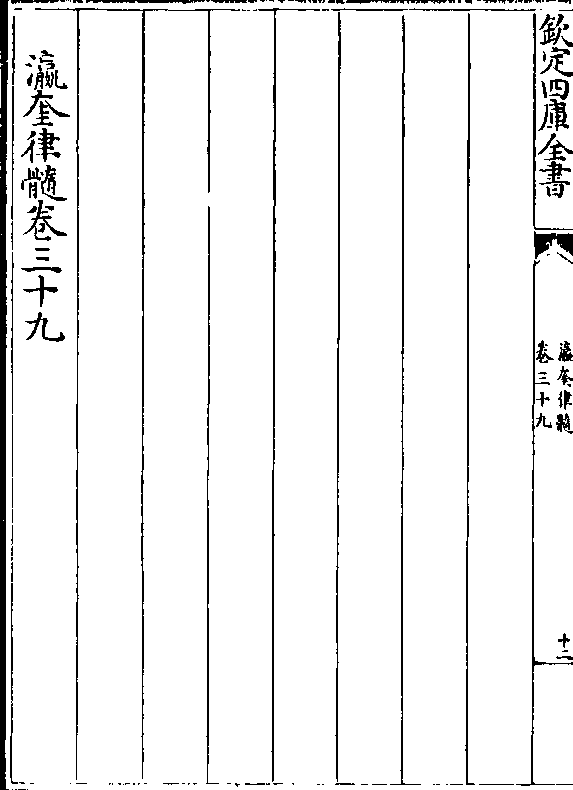 欽定四庫全書
瀛奎律髓
卷三十九
十二
瀛奎律髓卷三十九